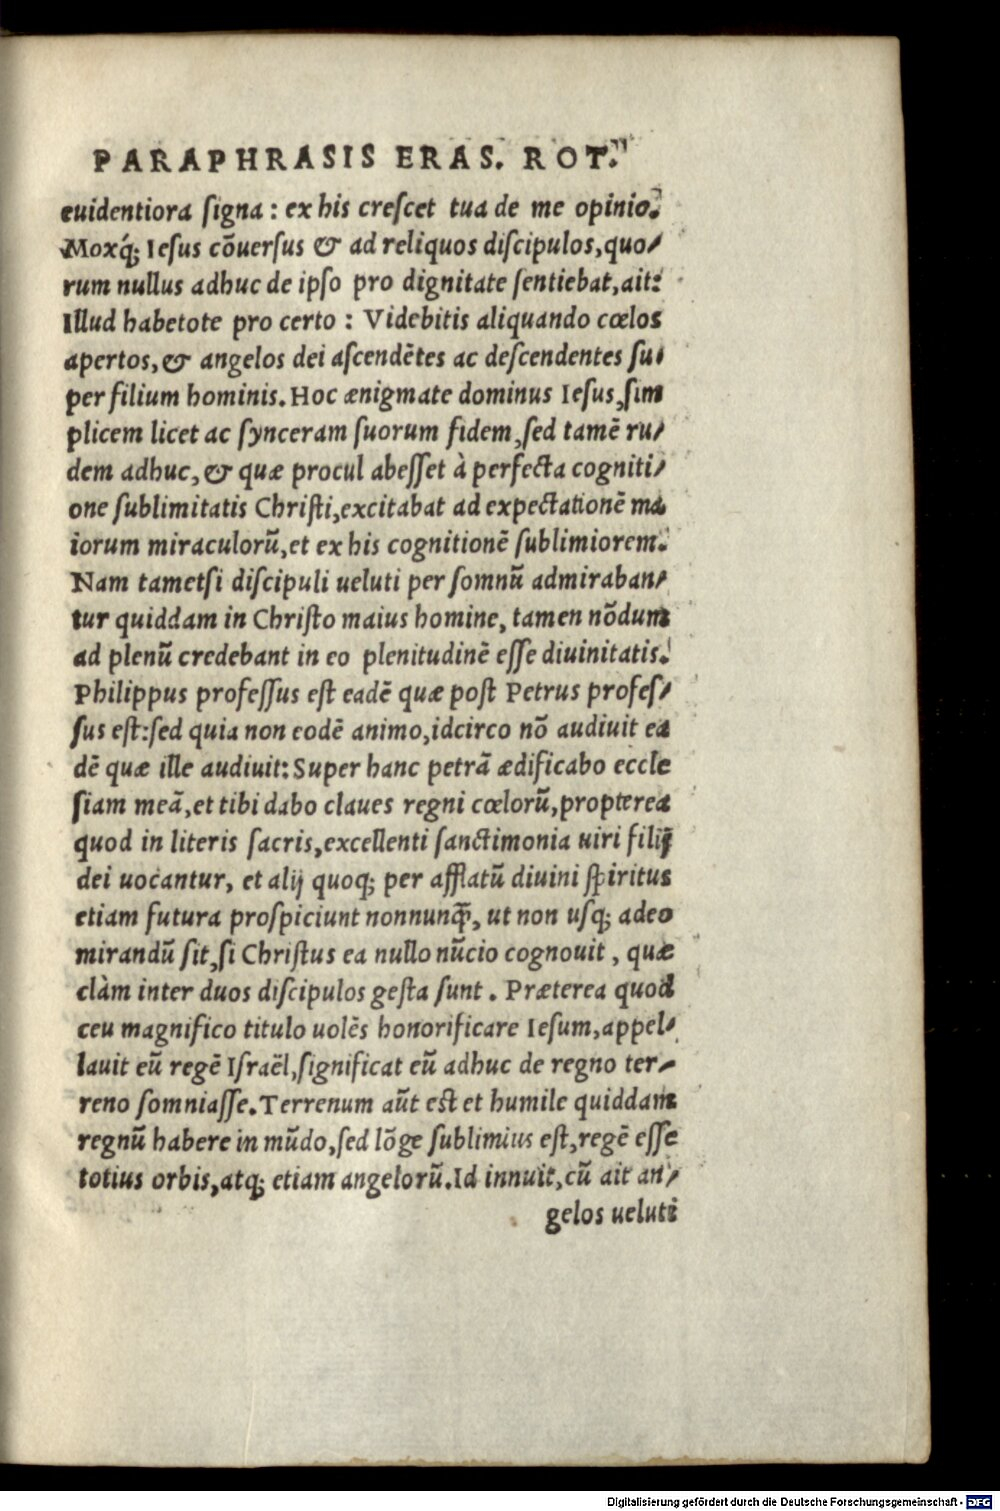 PARAPHRASIS ERAS. ROT.
euidentiora ſigna : ex his creſcet tua de me opinio.
Moxq́; Ieſus cõuerſus & ad reliquos diſcipulos,quo/
rum nullus adhuc de ipſo pro dignitate ſentiebat,ait:
Illud habetote pro certo : Videbitis aliquando cœlos
apertos,& angelos dei aſcendētes ac deſcendentes ſu/
per filium hominis.Hoc ænigmate dominus Ieſus,ſim
plicem licet ac ſynceram ſuorum fidem,ſed tamē ru/
dem adhuc,& quæ procul abeſſet à perfecta cogniti/
one ſublimitatis Chriſti,excitabat ad expectationē ma
iorum miraculorũ,et ex his cognitionē ſublimiorem.
Nam tametſi diſcipuli ueluti per ſomnũ admiraban/
tur quiddam in Chriſto maius homine, tamen nõdum
ad plenũ credebant in eo plenitudinē eſſe diuinitatis.
Philippus profeſſus eſt eadē quæ poſt Petrus profeſ/
ſus eſt:ſed quia non eodē animo,idcirco nõ audiuit ea
dē quæ ille audiuit:Super hanc petrã ædificabo eccle
ſiam meã,et tibi dabo claues regni cœlorũ,propterea
quod in literis ſacris,excellenti ſanctimonia uiri filij
dei uocantur, et alij quoq; per afflatũ diuini ſpiritus
etiam futura proſpiciunt nonnunq̃, ut non uſq; adeo
mirandũ ſit,ſi Chriſtus ea nullo nũcio cognouit , quæ
clàm inter duos diſcipulos geſta ſunt . Præterea quod
ceu magnifico titulo uolēs honorificare Ieſum,appel/
lauit eũ regē Iſraël,ſignificat eũ adhuc de regno ter/
reno ſomniaſſe.Terrenum aũt eſt et humile quiddam
regnũ habere in mũdo,ſed lõge ſublimius eſt,regē eſſe
totius orbis,atq; etiam angelorũ.Id innuit,cũ ait an/
gelos ueluti
Digitalisierung gefördert durch die Deutsche Forschungsgemeinschaft - DFG